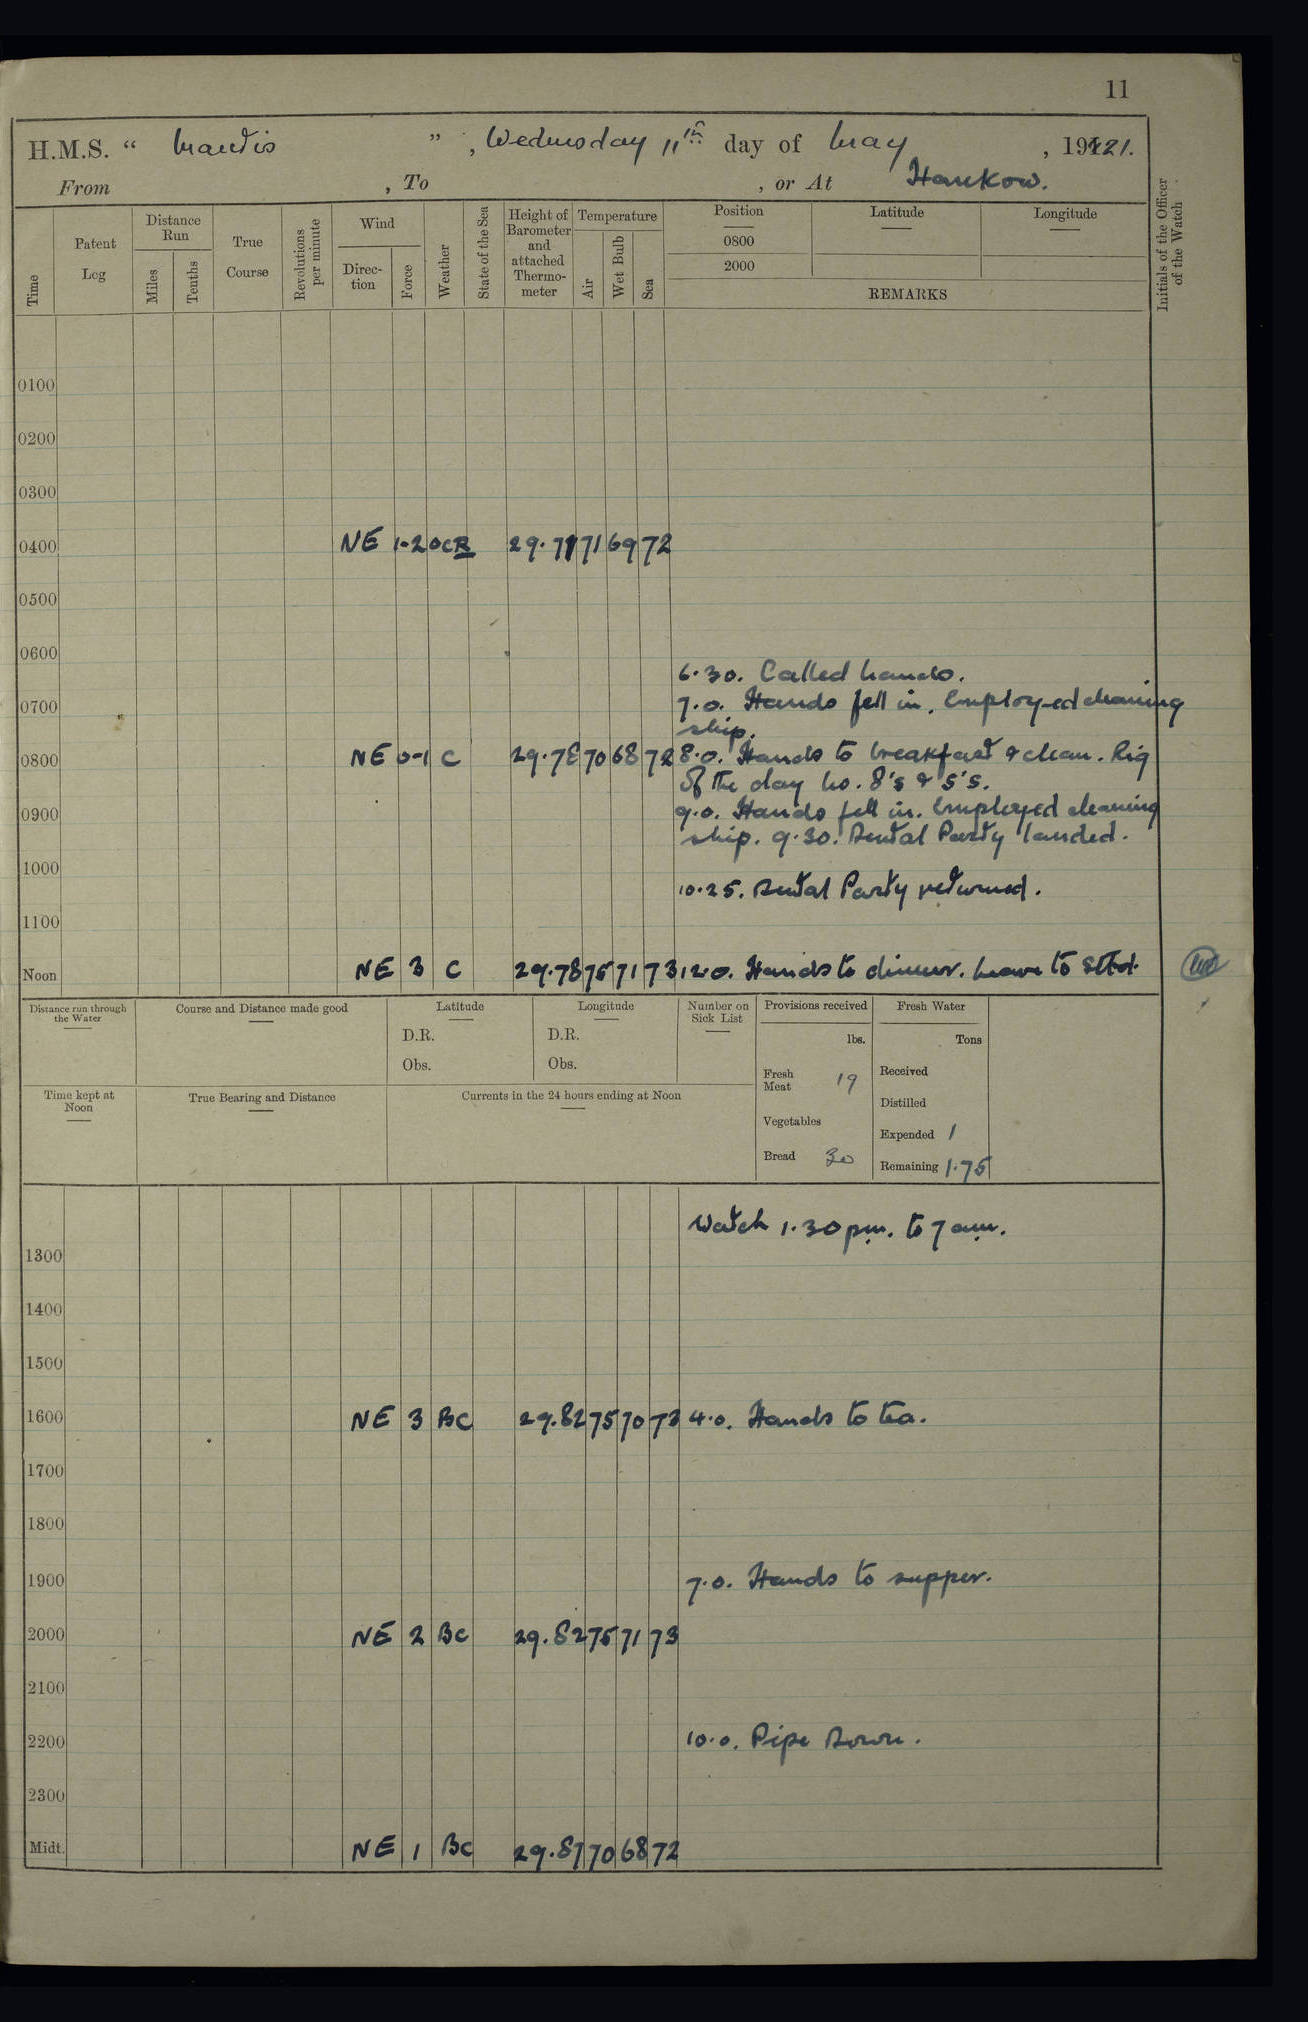 11
H.M.S. “ Mantis ” , Wednesday 11th day of May , 1921.
From , To , or At Hankow.
Time
Patent Log
Distance Run
Miles
Tenths
True Course
Revolutions per minute
Wind
Direction
Force
Weather
State of the Sea
Height of Barometer and attached Thermometer
Temperature
Air
Wet Bulb
Sea
Position
0800
2000
Latitude
Longitude
REMARKS
Initials of the Officer of the Watch
0100
0200
0300
0400 NE 1-2 OCR 29.77 71 69 72
0500
0600
6.30. Called hands.
0700 7.0. Hands fell in. Employed cleaning
ship.
0800 NE 0-1 C 29.78 70 68 72 8.0. Hands to breakfast & clean. Rig
of the day No. 8's & 5's.
0900 9.0. Hands fell in. Employed cleaning
ship. 9.30. Dental Party landed.
1000
10.25. Dental Party returned.
1100
Noon NE 3 C 29.78 75 71 73 12.0. Hands to dinner. Leave to Stbd.
Distance run through the Water
Course and Distance made good
Latitude
D.R.
Obs.
Longitude
D.R.
Obs.
Number on Sick List
Provisions received
lbs.
Fresh Meat 19
Vegetables
Bread 30
Fresh Water
Tons
Received
Distilled
Expended 1
Remaining 1.75
Time kept at Noon
True Bearing and Distance
Currents in the 24 hours ending at Noon
Watch 1.30 pm. to 7 am.
1300
1400
1500
1600 NE 3 BC 29.82 75 70 73 4.0. Hands to tea.
1700
1800
1900 7.0. Hands to supper.
2000 NE 2 BC 29.82 75 71 73
2100
2200 10.0. Pipe Down.
2300
Midt. NE 1 BC 29.87 70 68 72